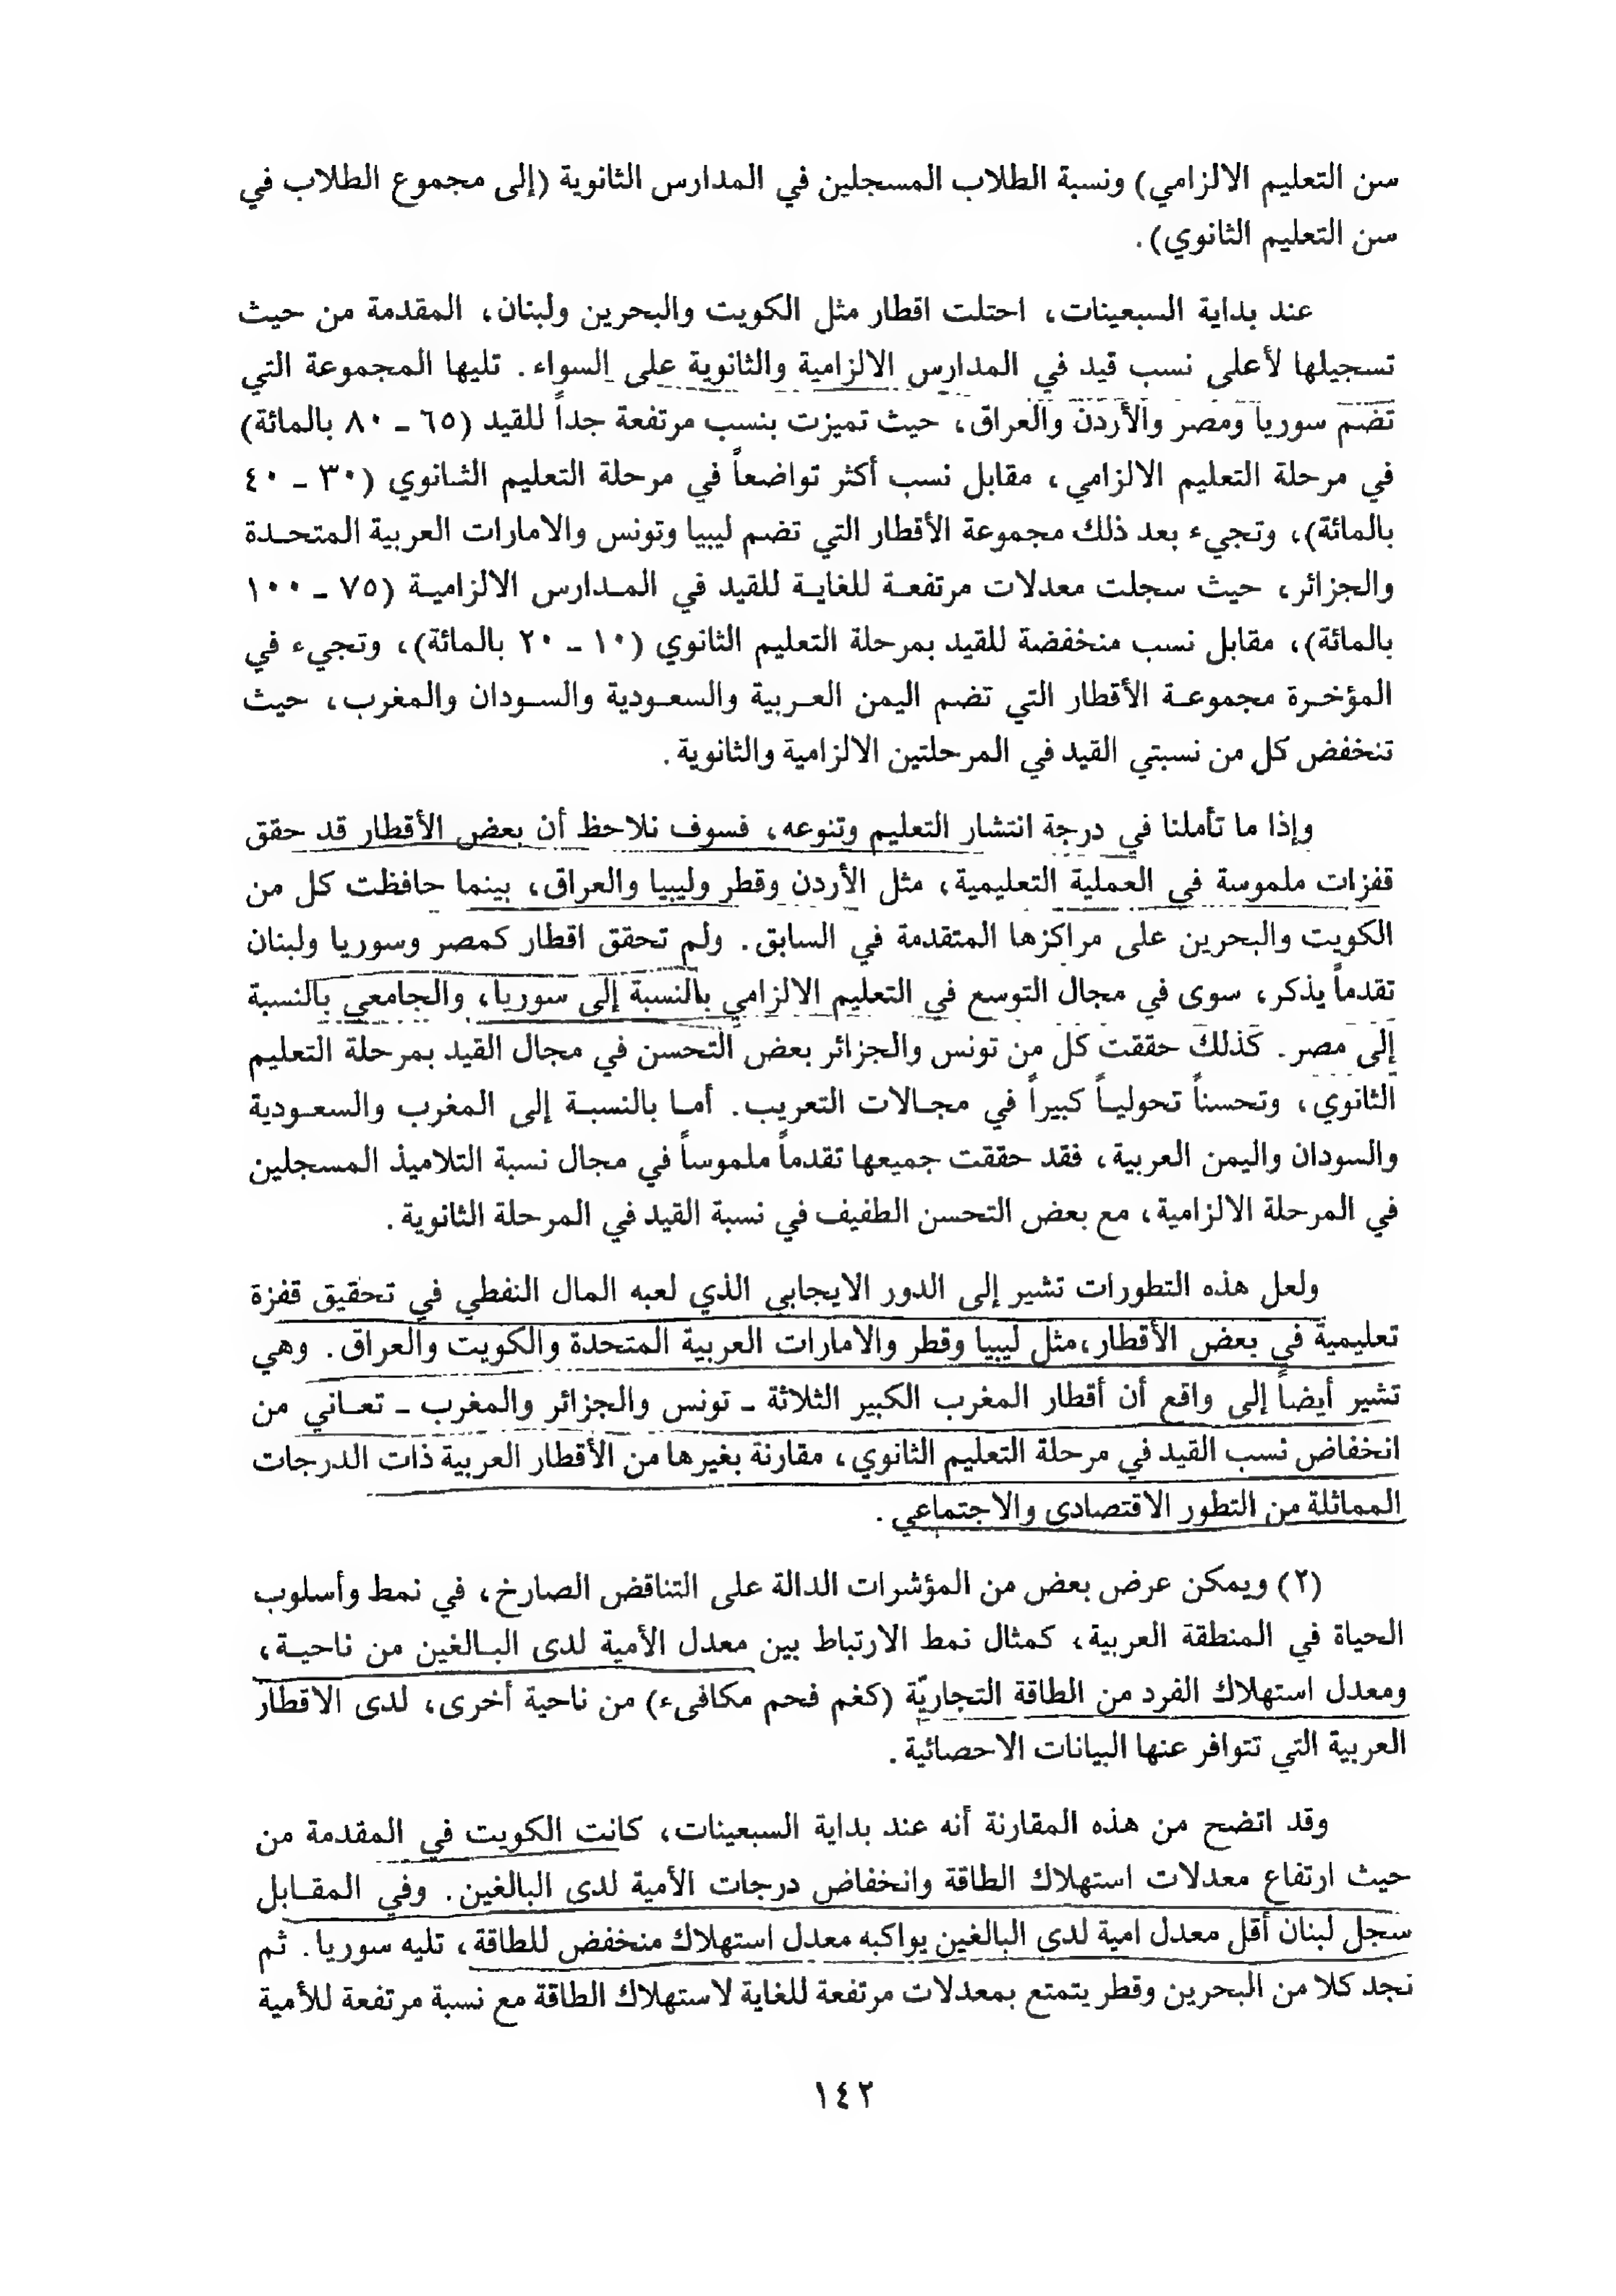 سن التعليم الالزامي) ونسبة الطلاب المسجلين في المدارس الثانوية (إلى مجموع الطلاب في
سن التعليم الثانوي).
عند بداية السبعينات، احتلت اقطار مثل الكويت والبحرين ولبنان، المقدمة من حيث
تسجيلها لأعلى نسب قيد في المدارس الالزامية والثانوية على السواء. تليها المجموعة التي
تضم سوريا ومصر والأردن والعراق، حيث تميزت بنسب مرتفعة جداً للقيد (٦٥ ـ ٨٠ بالمائة)
في مرحلة التعليم الالزامي، مقابل نسب أكثر تواضعاً في مرحلة التعليم الثانوي (٣٠ ـ ٤٠
بالمائة)، وتجيء بعد ذلك مجموعة الأقطار التي تضم ليبيا وتونس والامارات العربية المتحدة
والجزائر، حيث سجلت معدلات مرتفعة للغاية للقيد في المدارس الالزامية (٧٥ ـ ١٠٠
بالمائة)، مقابل نسب منخفضة للقيد بمرحلة التعليم الثانوي (١٠ ـ ٢٠ بالمائة)، وتجيء في
المؤخرة مجموعة الأقطار التي تضم اليمن العربية والسعودية والسودان والمغرب، حيث
تنخفض كل من نسبتي القيد في المرحلتين الالزامية والثانوية.
وإذا ما تأملنا في درجة انتشار التعليم وتنوعه، فسوف نلاحظ أن بعض الأقطار قد حقق
قفزات ملموسة في العملية التعليمية، مثل الأردن وقطر وليبيا والعراق، بينما حافظت كل من
الكويت والبحرين على مراكزها المتقدمة في السابق. ولم تحقق اقطار كمصر وسوريا ولبنان
تقدماً يذكر، سوى في مجال التوسع في التعليم الالزامي بالنسبة إلى سوريا، والجامعي بالنسبة
إلى مصر. كذلك حققت كل من تونس والجزائر بعض التحسن في مجال القيد بمرحلة التعليم
الثانوي، وتحسناً تحولياً كبيراً في مجالات التعريب. أما بالنسبة إلى المغرب والسعودية
والسودان واليمن العربية، فقد حققت جميعها تقدماً ملموساً في مجال نسبة التلاميذ المسجلين
في المرحلة الالزامية، مع بعض التحسن الطفيف في نسبة القيد في المرحلة الثانوية.
ولعل هذه التطورات تشير إلى الدور الايجابي الذي لعبه المال النفطي في تحقيق قفزة
تعليمية في بعض الأقطار،مثل ليبيا وقطر والامارات العربية المتحدة والكويت والعراق. وهي
تشير أيضاً إلى واقع أن أقطار المغرب الكبير الثلاثة ـ تونس والجزائر والمغرب ـ تعاني من
انخفاض نسب القيد في مرحلة التعليم الثانوي، مقارنة بغيرها من الأقطار العربية ذات الدرجات
المماثلة من التطور الاقتصادي والاجتماعي.
(٢) ويمكن عرض بعض من المؤشرات الدالة على التناقض الصارخ، في نمط وأسلوب
الحياة في المنطقة العربية، كمثال نمط الارتباط بين معدل الأمية لدى البالغين من ناحية،
ومعدل استهلاك الفرد من الطاقة التجاريّة (كغم فحم مكافىء) من ناحية أخرى، لدى الاقطار
العربية التي تتوافر عنها البيانات الاحصائية.
وقد اتضح من هذه المقارنة أنه عند بداية السبعينات، كانت الكويت في المقدمة من
حيث ارتفاع معدلات استهلاك الطاقة وانخفاض درجات الأمية لدى البالغين. وفي المقابل
سجل لبنان أقل معدل امية لدى البالغين يواكبه معدل استهلاك منخفض للطاقة، تليه سوريا. ثم
نجد كلا من البحرين وقطر يتمتع بمعدلات مرتفعة للغاية لاستهلاك الطاقة مع نسبة مرتفعة للأمية
١٤٢